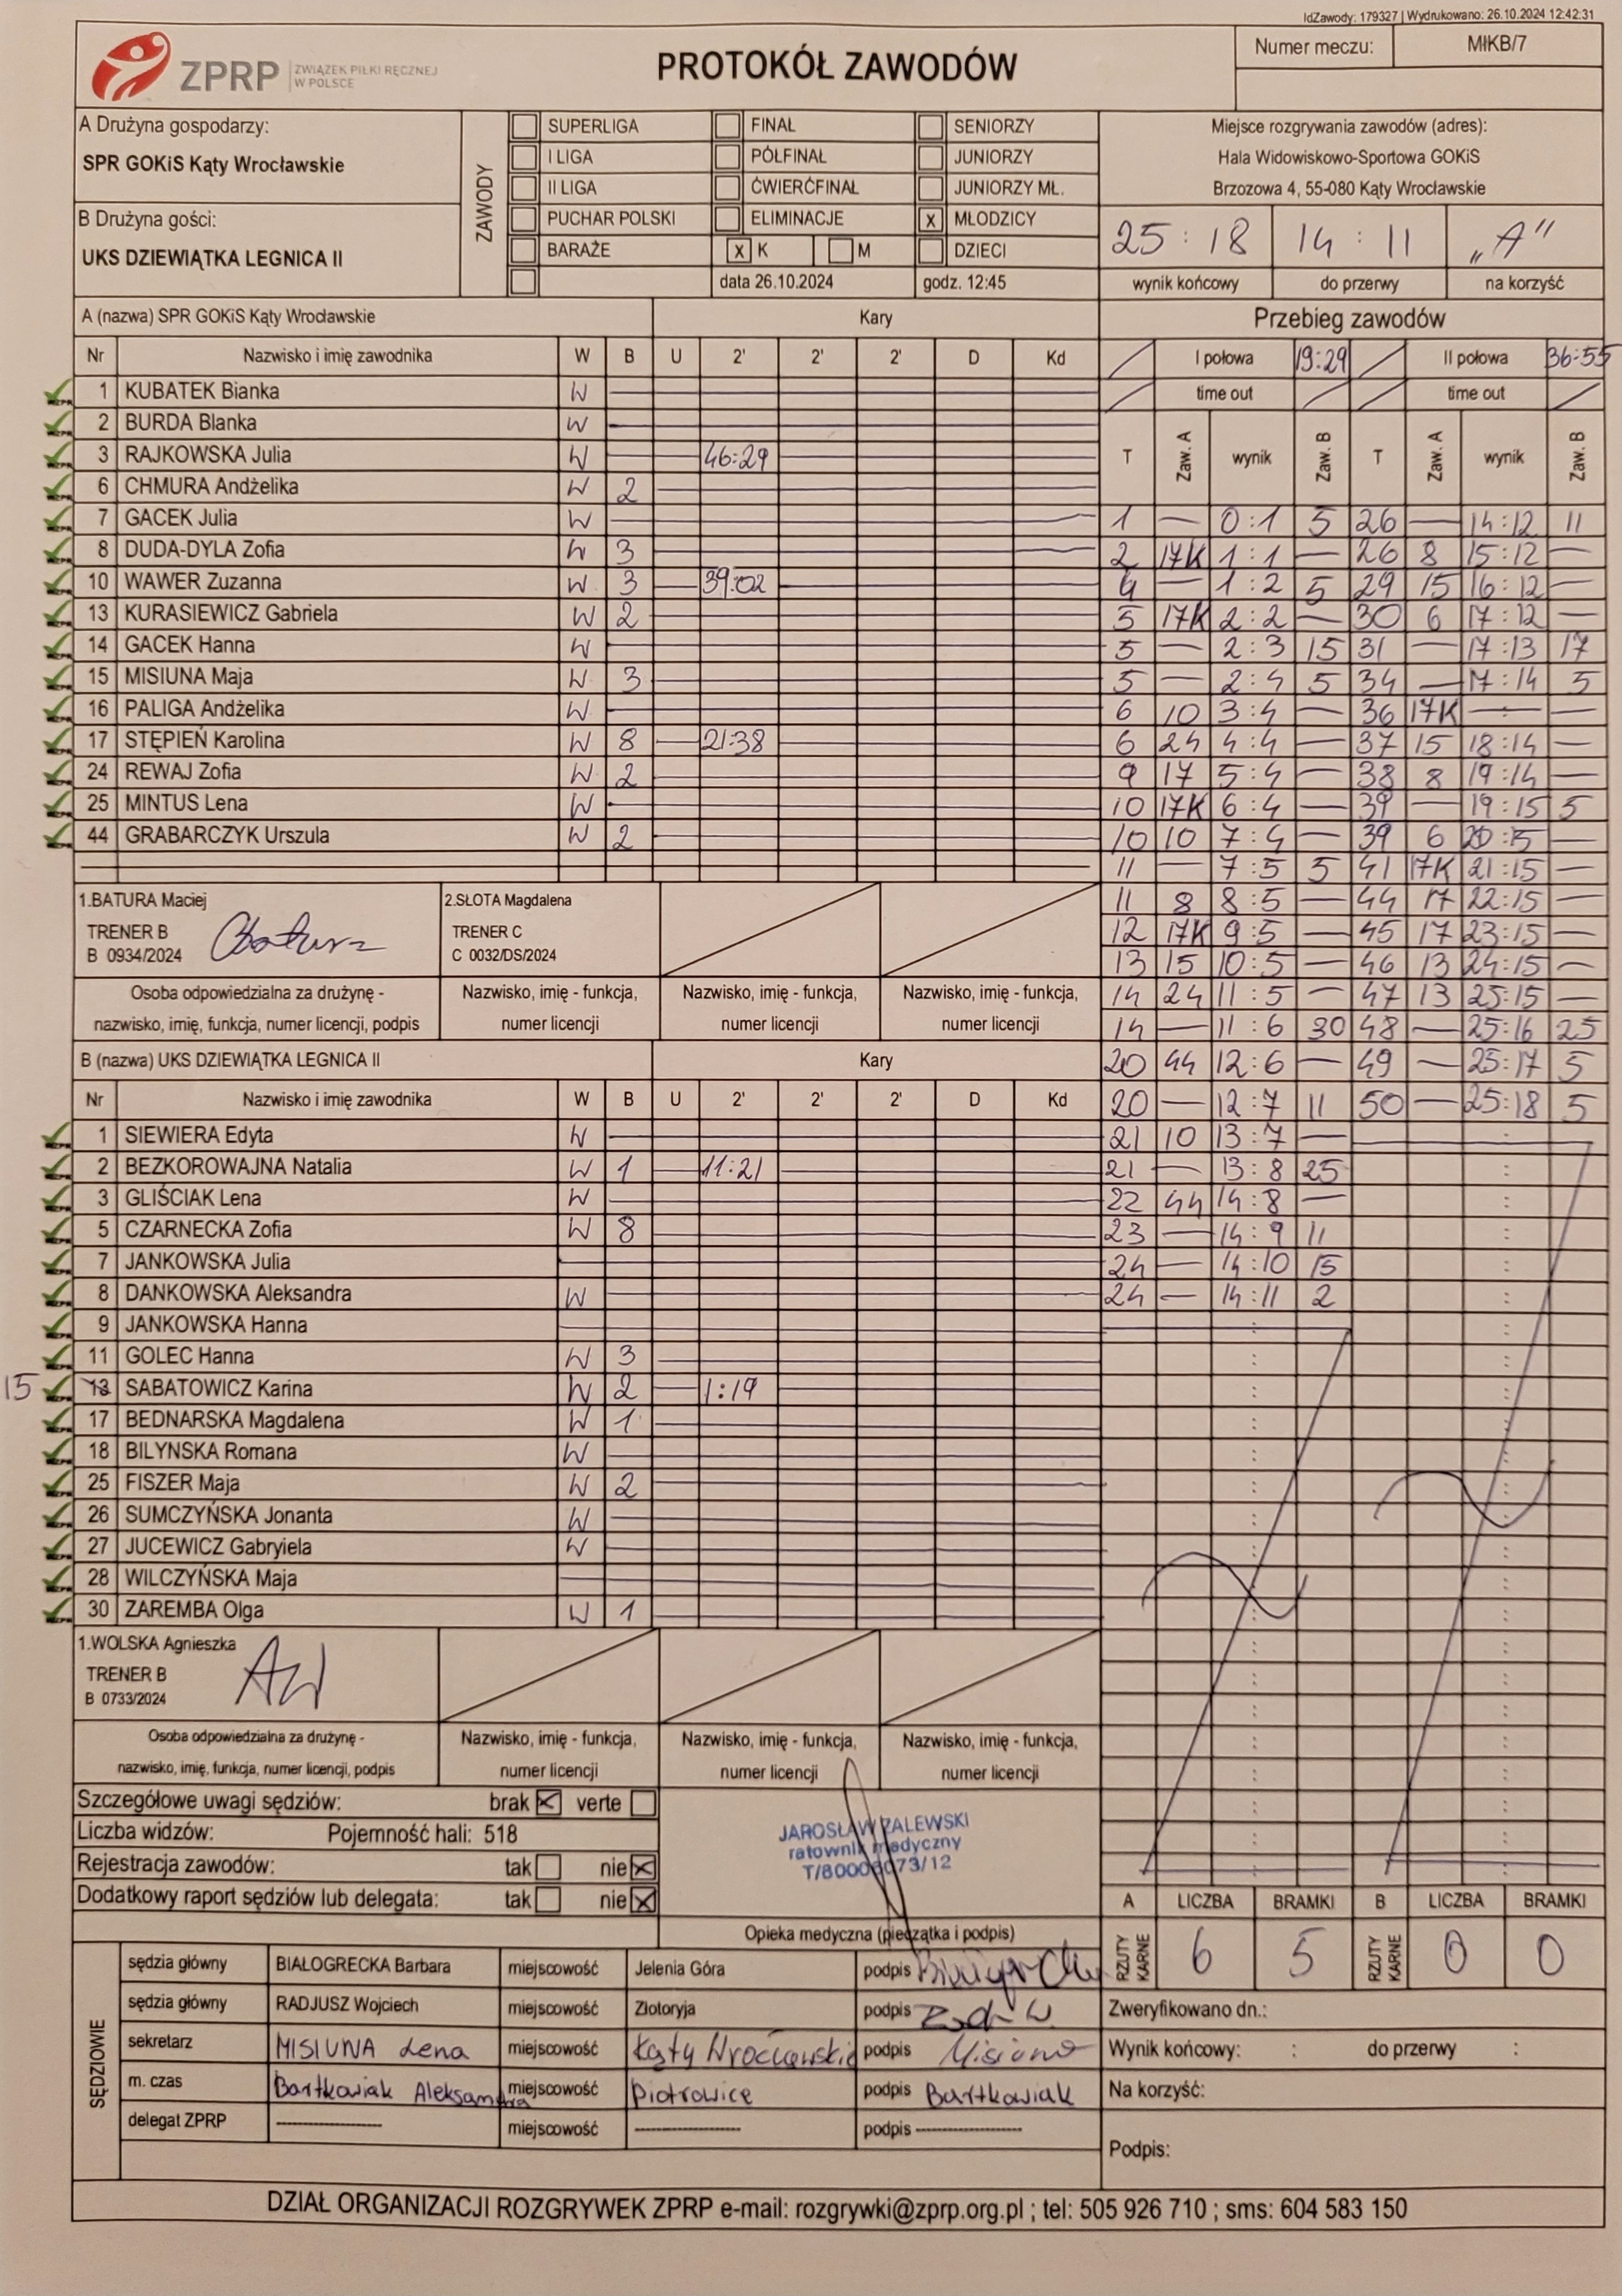 IdZawody: 179327 | Wydrukowano: 26.10.2024 12:42:31
ZPRP ZWIĄZEK PIŁKI RĘCZNEJ W POLSCE
PROTOKÓŁ ZAWODÓW
Numer meczu: MłKB/7
A Drużyna gospodarzy:
SPR GOKiS Kąty Wrocławskie
B Drużyna gości:
UKS DZIEWIĄTKA LEGNICA II
ZAWODY
SUPERLIGA FINAŁ SENIORZY
I LIGA PÓŁFINAŁ JUNIORZY
II LIGA ĆWIERĆFINAŁ JUNIORZY MŁ.
PUCHAR POLSKI ELIMINACJE x MŁODZICY
BARAŻE x K M DZIECI
data 26.10.2024 godz. 12:45
Miejsce rozgrywania zawodów (adres):
Hala Widowiskowo-Sportowa GOKiS
Brzozowa 4, 55-080 Kąty Wrocławskie
25 : 18 14 : 11 „A"
wynik końcowy do przerwy na korzyść
A (nazwa) SPR GOKiS Kąty Wrocławskie Kary
Nr Nazwisko i imię zawodnika W B U 2' 2' 2' D Kd
1 KUBATEK Bianka W
2 BURDA Blanka W
3 RAJKOWSKA Julia W 46:29
6 CHMURA Andżelika W 2
7 GACEK Julia W
8 DUDA-DYLA Zofia W 3
10 WAWER Zuzanna W 3 39:02
13 KURASIEWICZ Gabriela W 2
14 GACEK Hanna W
15 MISIUNA Maja W 3
16 PALIGA Andżelika W
17 STĘPIEŃ Karolina W 8 21:38
24 REWAJ Zofia W 2
25 MINTUS Lena W
44 GRABARCZYK Urszula W 2
1.BATURA Maciej
TRENER B
B 0934/2024
2.SŁOTA Magdalena
TRENER C
C 0032/DS/2024
Osoba odpowiedzialna za drużynę - Nazwisko, imię - funkcja, Nazwisko, imię - funkcja, Nazwisko, imię - funkcja,
nazwisko, imię, funkcja, numer licencji, podpis numer licencji numer licencji numer licencji
B (nazwa) UKS DZIEWIĄTKA LEGNICA II Kary
Nr Nazwisko i imię zawodnika W B U 2' 2' 2' D Kd
1 SIEWIERA Edyta W
2 BEZKOROWAJNA Natalia W 1 11:21
3 GLIŚCIAK Lena W
5 CZARNECKA Zofia W 8
7 JANKOWSKA Julia
8 DANKOWSKA Aleksandra W
9 JANKOWSKA Hanna
11 GOLEC Hanna W 3
15 13 SABATOWICZ Karina W 2 1:19
17 BEDNARSKA Magdalena W 1
18 BILYNSKA Romana W
25 FISZER Maja W 2
26 SUMCZYŃSKA Jonanta W
27 JUCEWICZ Gabryiela W
28 WILCZYŃSKA Maja
30 ZAREMBA Olga W 1
1.WOLSKA Agnieszka
TRENER B
B 0733/2024
AW
Osoba odpowiedzialna za drużynę - Nazwisko, imię - funkcja, Nazwisko, imię - funkcja, Nazwisko, imię - funkcja,
nazwisko, imię, funkcja, numer licencji, podpis numer licencji numer licencji numer licencji
Przebieg zawodów
I połowa 19:29 II połowa 36:55
time out time out
T Zaw. A wynik Zaw. B T Zaw. A wynik Zaw. B
1 — 0:1 5 26 — 14:12 11
2 17K 1:1 — 26 8 15:12 —
4 — 1:2 5 29 15 16:12 —
5 17K 2:2 — 30 6 17:12 —
5 — 2:3 15 31 — 17:13 17
5 — 2:4 5 34 — 17:14 5
6 10 3:4 — 36 17K — : — —
6 24 4:4 — 37 15 18:14 —
9 17 5:4 — 38 8 19:14 —
10 17K 6:4 — 39 — 19:15 5
10 10 7:4 — 39 6 20:15 —
11 — 7:5 5 41 17K 21:15 —
11 8 8:5 — 44 17 22:15 —
12 17K 9:5 — 45 17 23:15 —
13 15 10:5 — 46 13 24:15 —
14 24 11:5 — 47 13 25:15 —
14 — 11:6 30 48 — 25:16 25
20 44 12:6 — 49 — 25:17 5
20 — 12:7 11 50 — 25:18 5
21 10 13:7 —
21 — 13:8 25
22 44 14:8 —
23 — 14:9 11
24 — 14:10 15
24 — 14:11 2
Szczegółowe uwagi sędziów: brak x verte
Liczba widzów: Pojemność hali: 518
Rejestracja zawodów: tak nie x
Dodatkowy raport sędziów lub delegata: tak nie x
JAROSŁAW ZALEWSKI
ratownik medyczny
Opieka medyczna (pieczątka i podpis)
A LICZBA BRAMKI B LICZBA BRAMKI
RZUTY KARNE 6 5 RZUTY KARNE 0 0
SĘDZIOWIE
sędzia główny BIAŁOGRECKA Barbara miejscowość Jelenia Góra podpis
sędzia główny RADJUSZ Wojciech miejscowość Złotoryja podpis
sekretarz MISIUNA Lena miejscowość Kąty Wrocławskie podpis Misiuna
m. czas Bartkowiak Aleksandra miejscowość Piotrowice podpis Bartkowiak
delegat ZPRP ---------- miejscowość ---------- podpis ----------
Zweryfikowano dn.:
Wynik końcowy: : do przerwy :
Na korzyść:
Podpis:
DZIAŁ ORGANIZACJI ROZGRYWEK ZPRP e-mail: rozgrywki@zprp.org.pl ; tel: 505 926 710 ; sms: 604 583 150